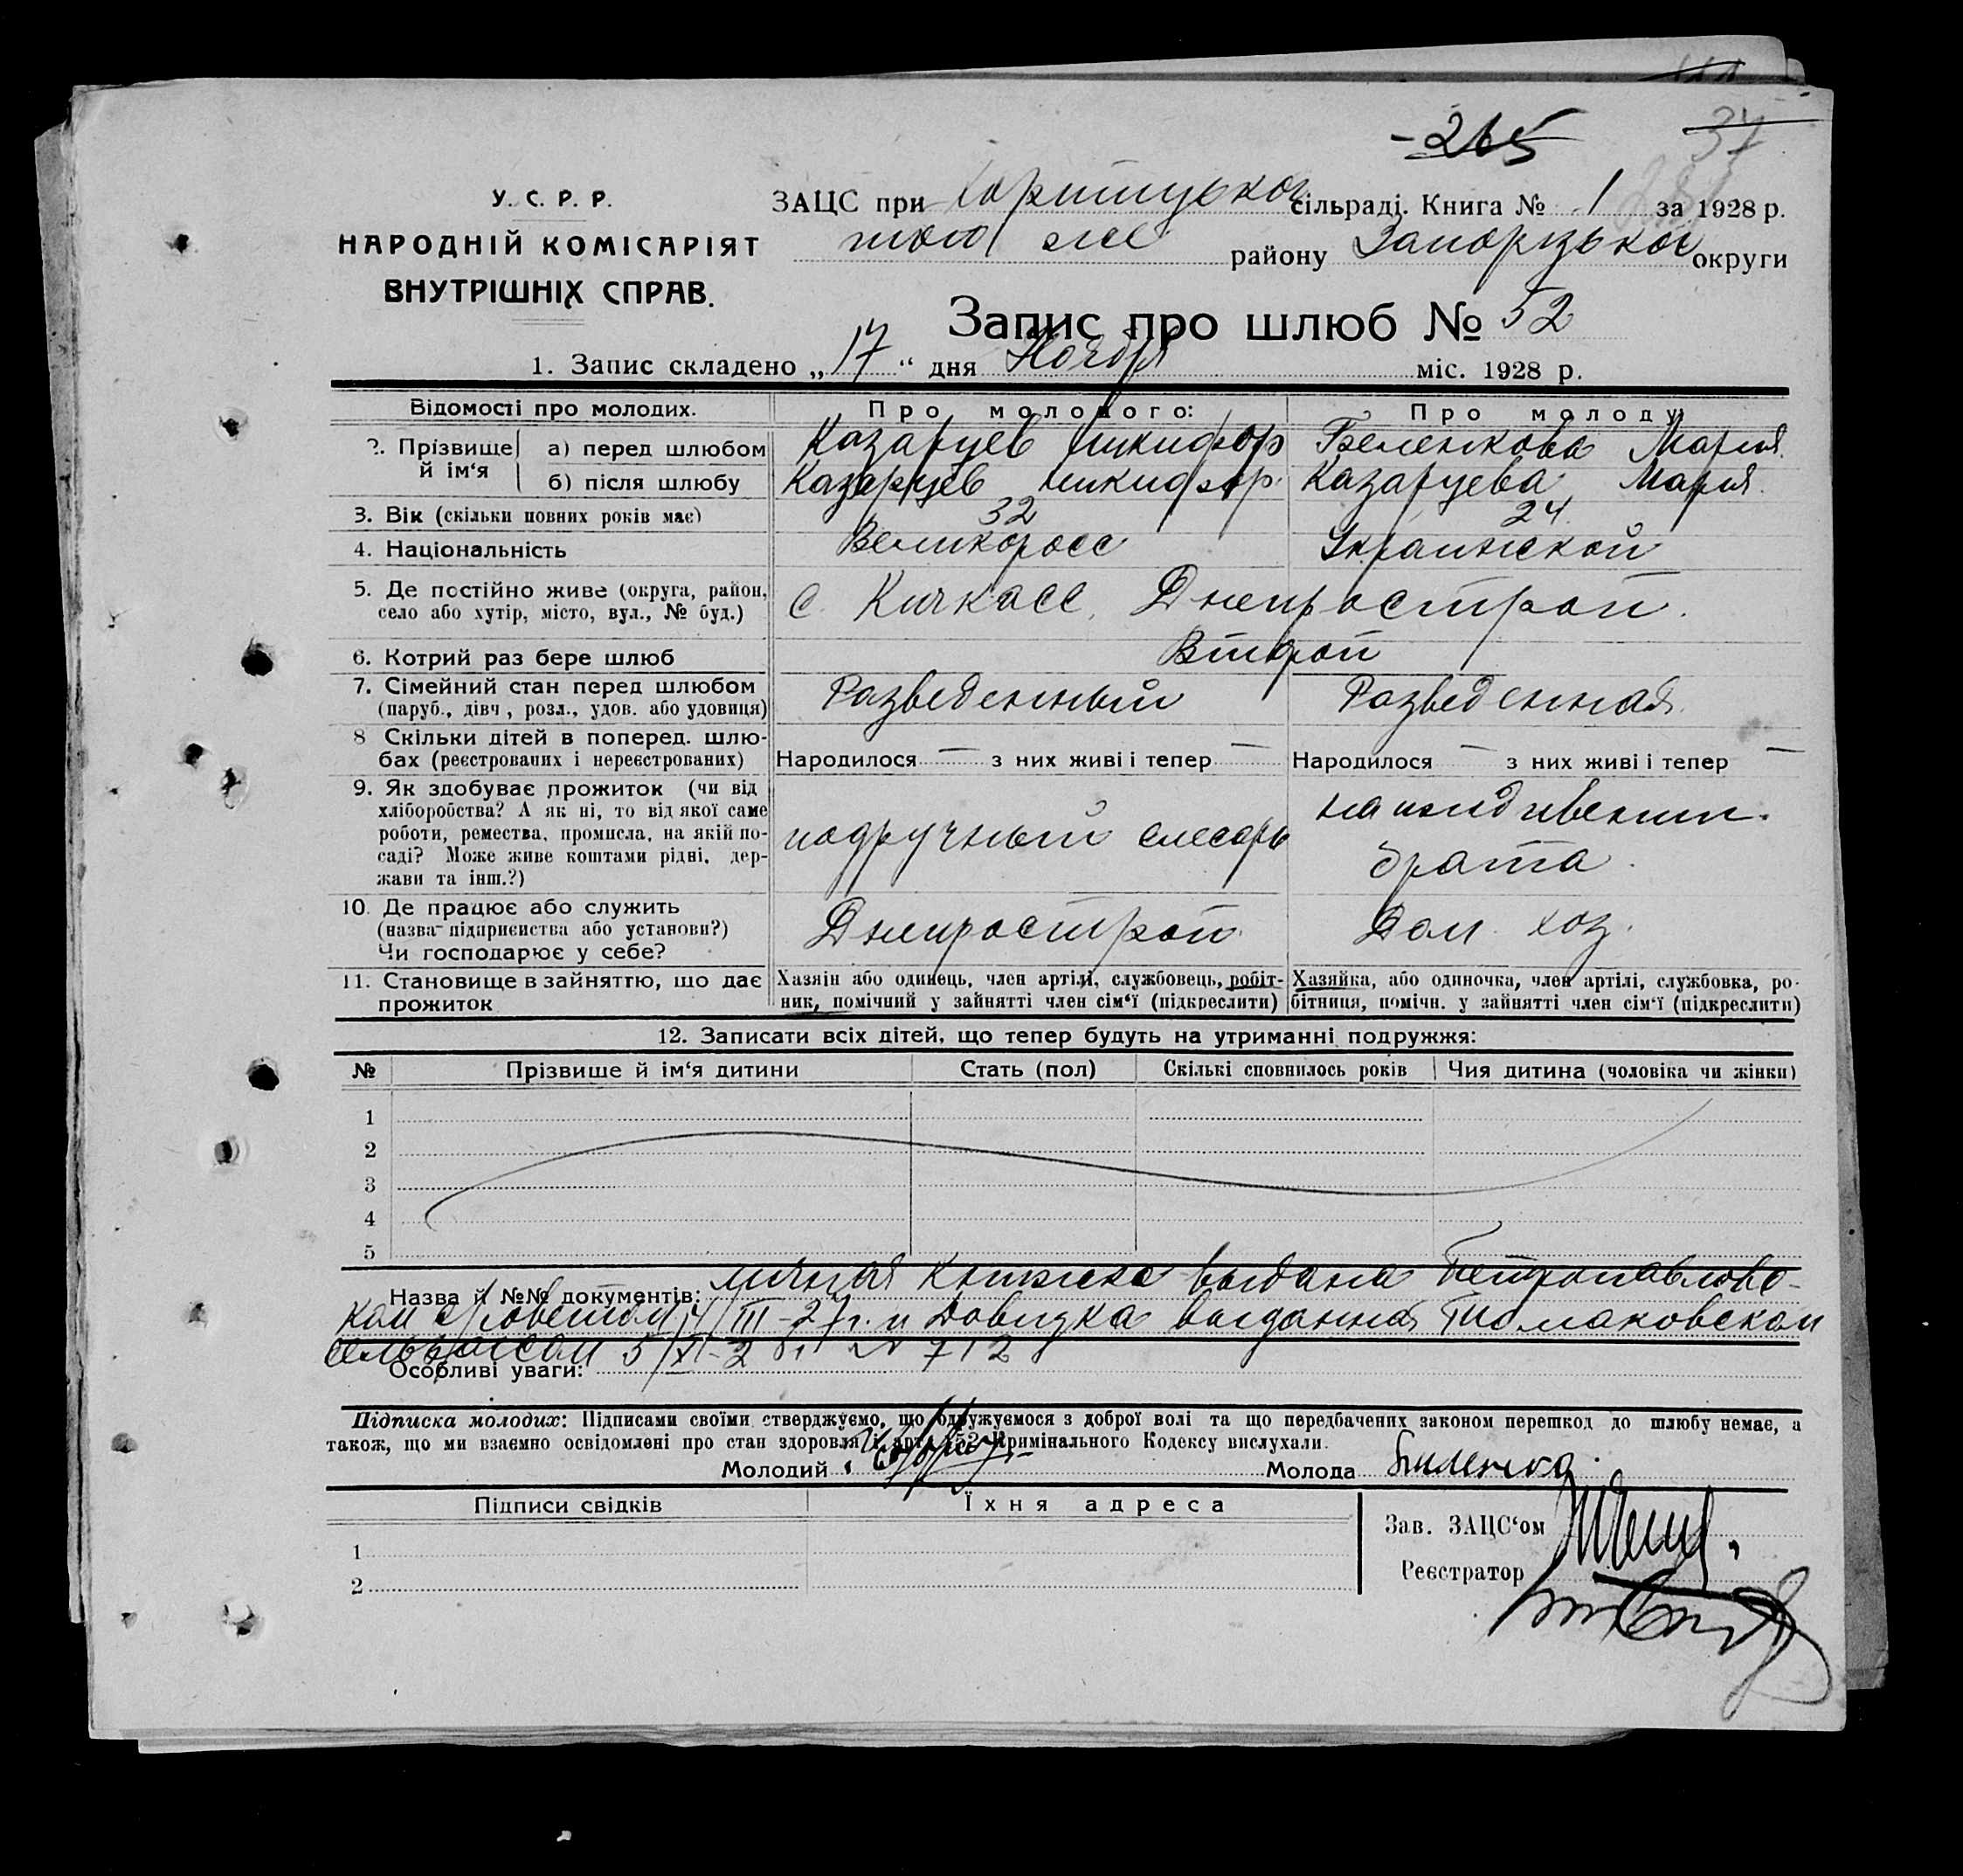 -265
37
У. С. Р. Р.
НАРОДНІЙ КОМІСАРІЯТ
ВНУТРІШНІХ СПРАВ.
ЗАЦС при Хортицькой сільраді. Книга № 1 за 1928 р.
того же району Запорізькой округи
Запис про шлюб № 52
1. Запис складено „17“ дня Ноября міс. 1928 р.
Відомості про молодих. Про молодого: Про молоду:
2. Прізвище й ім'я а) перед шлюбом Казарцев Никифор Беленкова Мария
б) після шлюбу Казарцев Никифор Казарцева Мария
3. Вік (скільки повних років має) 32 24
4. Національність Великоросс Украинской
5. Де постійно живе (округа, район, село або хутір, місто, вул., № буд.) с. Кичкасс, Днепрострой.
6. Котрий раз бере шлюб Второй
7. Сімейний стан перед шлюбом (паруб., дівч., розл., удов. або удовиця) Разведенный Разведенная
8 Скільки дітей в поперед. шлюбах (реєстрованих і нереєстрованих) Народилося — з них живі і тепер — Народилося — з них живі і тепер —
9. Як здобуває прожиток (чи від хліборобства? А як ні, то від якої саме роботи, ремества, промисла, на якій посаді? Може живе коштами рідні, держави та інш.?) подручный слесарь на иждивении брата
10. Де працює або служить (назва підприємства або установи?) Чи господарює у себе? Днепрострой Дом. хоз.
11. Становище в зайняттю, що дає прожиток
Хазяїн або одинець, член артілі, службовець, робітник, помічний у зайнятті член сім'ї (підкреслити)
Хазяйка, або одиночка, член артілі, службовка, робітниця, помічн. у зайнятті член сім'ї (підкреслити)
12. Записати всіх дітей, що тепер будуть на утриманні подружжя:
№ Прізвище й ім'я дитини Стать (пол) Скількі сповнилось років Чия дитина (чоловіка чи жінки)
1
2
3
4
5
Назва й №№ документів: личная книжка выдана Петропавловс-
ким /III-27г. и Довидка выданная Томаковском
5/XI-2 г. № 712
Особливі уваги:
Підписка молодих: Підписами своїми стверджуємо, що одружуємося з доброї волі та що передбачених законом перешкод до шлюбу немає, а
також, що ми взаємно освідомлені про стан здоровля і арт. 152 Кримінального Кодексу вислухали.
Молодий Молода Биленко
Підписи свідків Їхня адреса
1
2
Зав. ЗАЦС'ом
Реєстратор